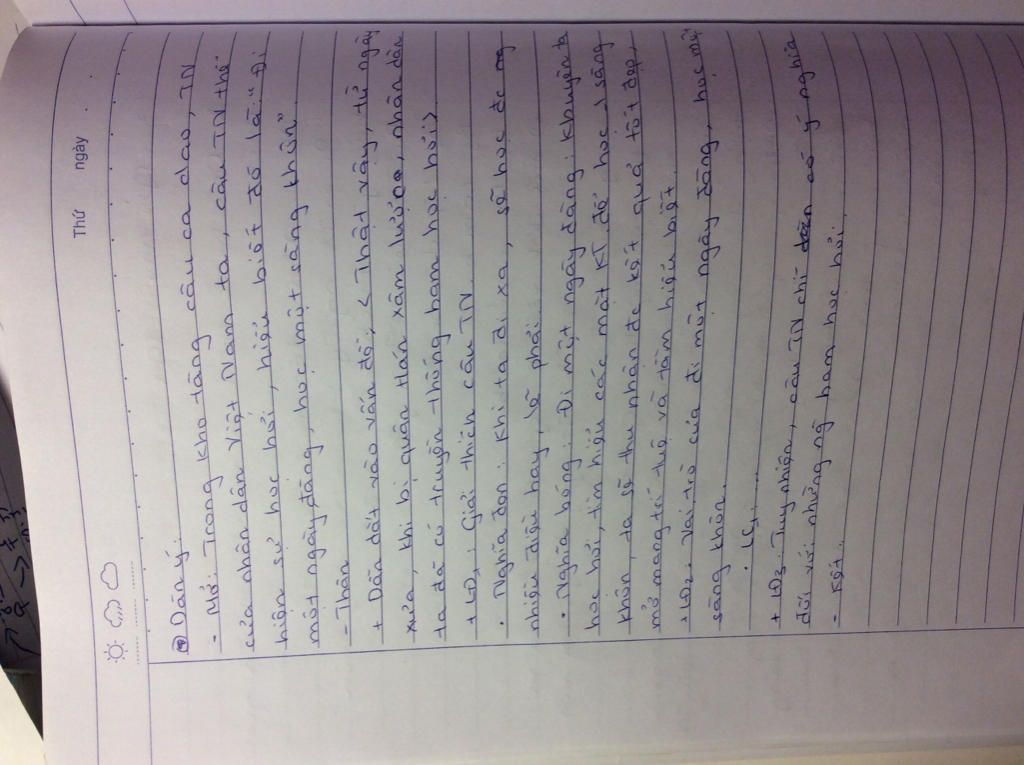 Thứ ngày
Dàn ý:
- Mở: Trong kho tàng câu ca dao, TN
của nhân dân Việt Nam ta, câu TN thể
hiện sự học hỏi, hiểu biết đó là: "Đi
một ngày đàng, học một sàng khôn"
- Thân
+ Dẫn dắt vào vấn đề: < Thật vậy, từ ngày
xưa, khi bị quân Hán xâm lược, nhân dân
ta đã có truyền thống ham học hỏi>
+ LĐ1: Giải thích câu TN
. Nghĩa đen: Khi ta đi xa, sẽ học đc
nhiều điều hay, lẽ phải.
. Nghĩa bóng: Đi một ngày đàng: khuyên ta
học hỏi, tìm hiểu các mặt KT để học > sàng
khôn, ta sẽ thu nhận đc kết quả tốt đẹp,
mở mang trí tuệ và tầm hiểu biết.
+ LĐ2: Vai trò của đi một ngày đàng, học một
sàng khôn.
+ LĐ3: Tuy nhiên, câu TN chỉ có ý nghĩa
đối với những ng ham học hỏi.
- Kết: